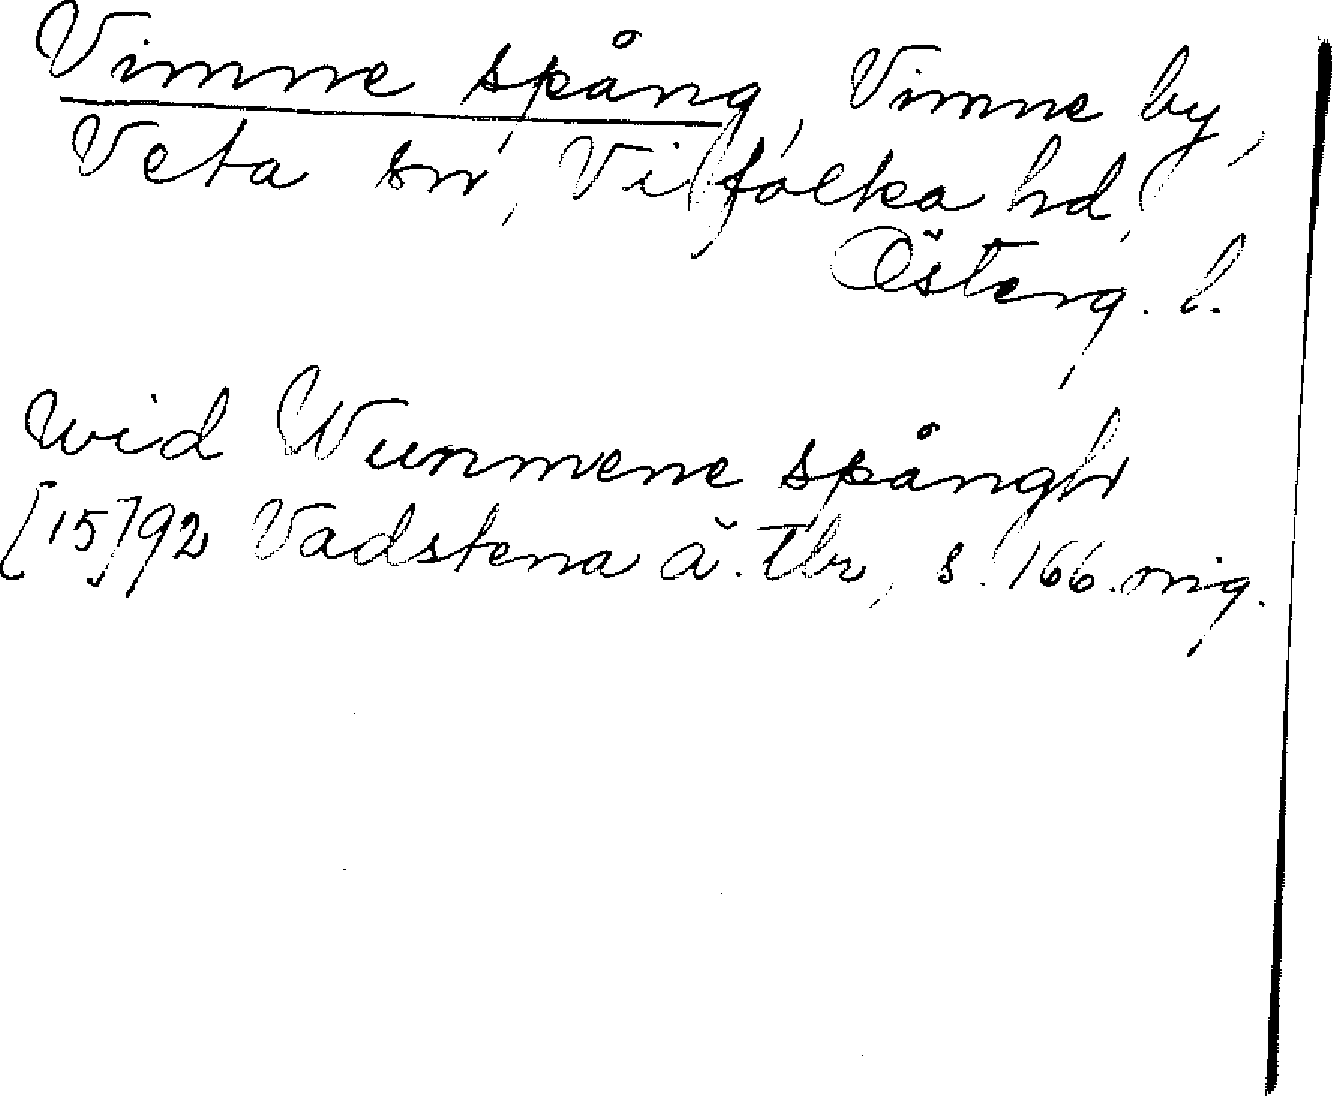 Vimne spång, Vimne by,
Veta sn, Vifolka hd,
Österg. l.
wid Wunmene spångh
[15]92 Vadstena ä. tbr, s. 166. orig.